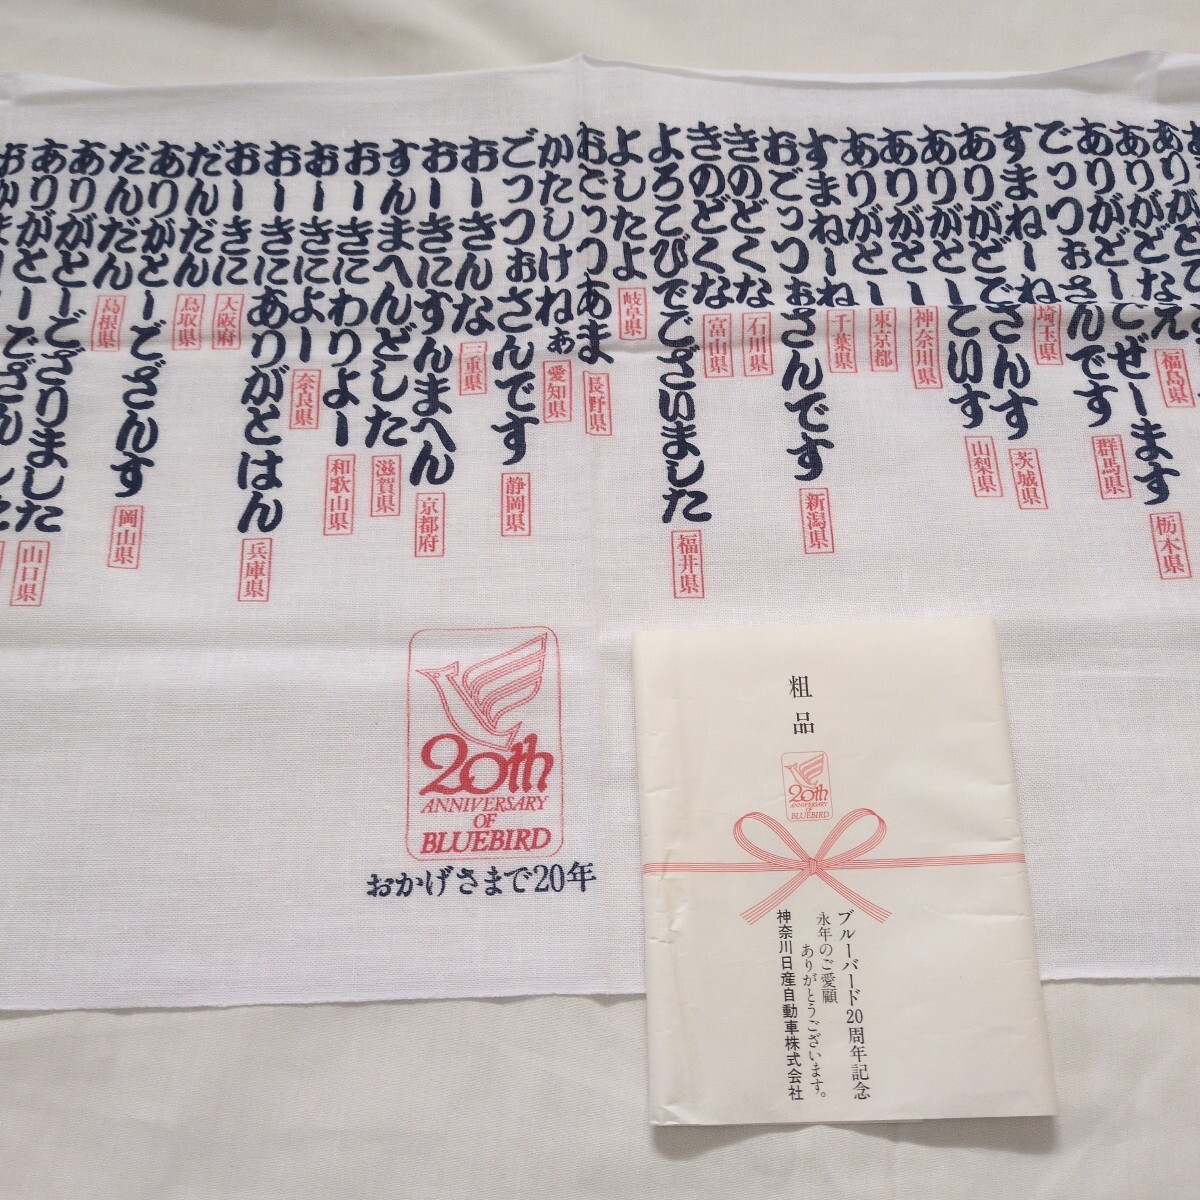 ありがどなえ
福島県
ぜーます
栃木県
でっつぉさんです
群馬県
すまねーね
埼玉県
ありがどでごさんす
茨城県
ありがとーごいす
山梨県
ありがとー
神奈川県
ありがとー
東京都
すまねーね
千葉県
おごっつぉさんです
新潟県
きのどくな
石川県
きのどくな
富山県
よろこびでございました
福井県
よしたよ
岐阜県
おごっつおあま
長野県
かたしけねぁ
愛知県
ごっつぉさんです
静岡県
おーきんな
三重県
おーきにすんまへん
京都府
すんまへんどした
滋賀県
おーきにわりよー
和歌山県
おーきによー
奈良県
おーきにありがとはん
兵庫県
おーきに
大阪府
だんだん
鳥取県
ありがとーござんす
岡山県
だんだん
島根県
ありがとーござりました
山口県
ありがとーござんした
20th
ANNIVERSARY
OF
BLUEBIRD
おかげさまで20年
粗品
20th
ANNIVERSARY
OF
BLUEBIRD
ブルーバード20周年記念
永年のご愛顧
ありがとうございます。
神奈川日産自動車株式会社